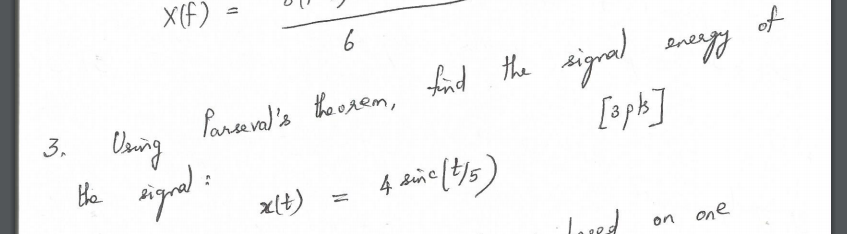 X(f) =
6
3. Using Parseval's theorem, find the signal energy of
the signal: [3 pts]
x(t) = 4 sinc(t/5)
on one